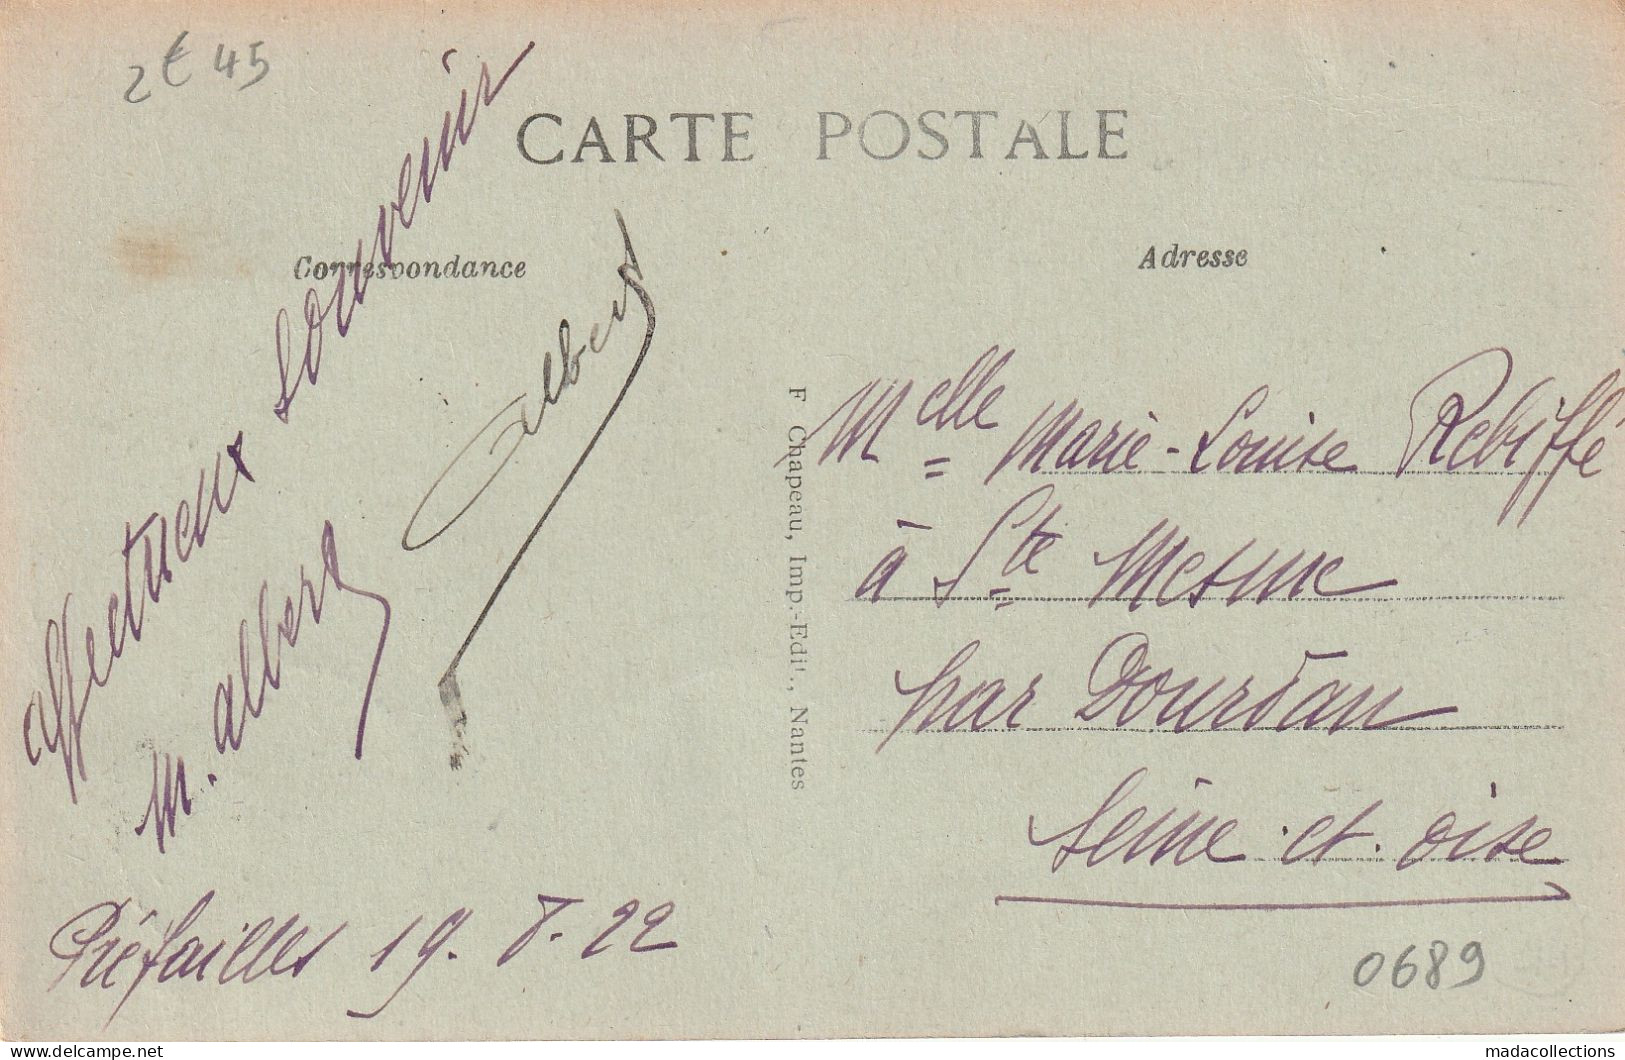 2€45
CARTE POSTALE
Correspondance
Adresse
affectueux souvenir
M. Albert
Albert
Préfailles 19. 8. 22
F Chapeau, Imp.-Edit., Nantes
Melle Marie-Louise Rebiffé
à Ste Mesme
par Dourdan
Seine et Oise
0689
delcampe.net
madacollections